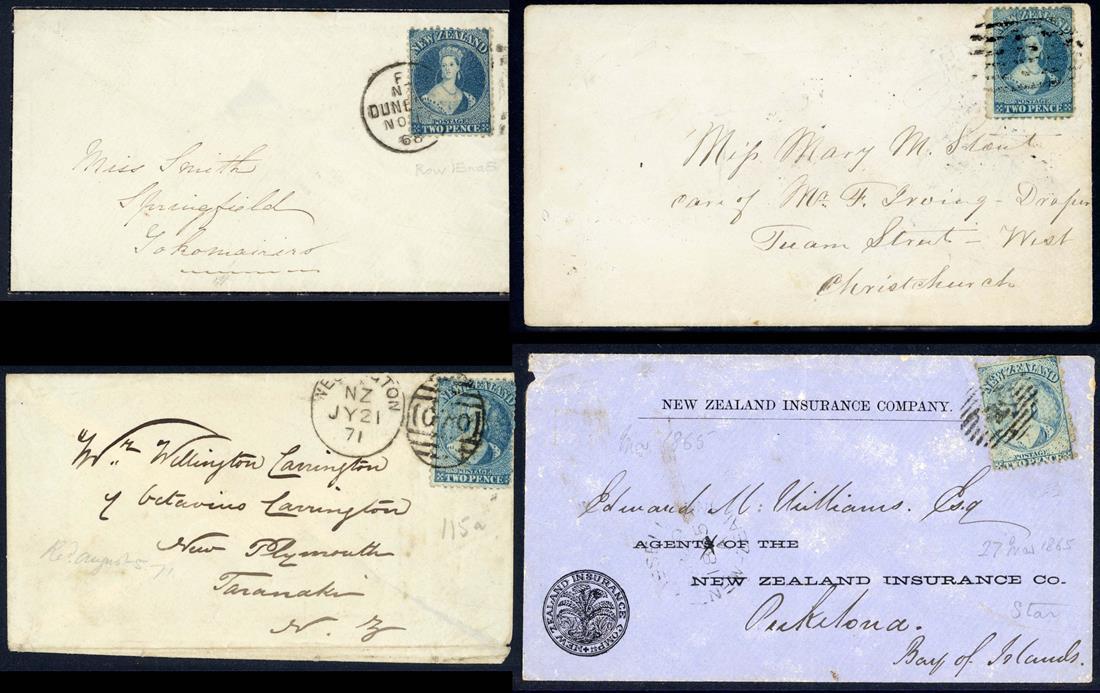 NEW ZEALAND
POSTAGE
TWO PENCE
DUNE
NO
68
Row 15 no 5
Miss Smith
Springfield
Tokomairiro
NEW ZEALAND
POSTAGE
TWO PENCE
Miss Mary M. Stout
care of Mr. F. Irving - Draper
Tuam Street - West
Christchurch
WELLINGTON
NZ
JY 21
71
NEW ZEALAND
POSTAGE
TWO PENCE
Mr. Wellington Carrington
Octavius Carrington
115a
New Plymouth
Recd. August 5 - 71
Taranaki
N. Z
NEW ZEALAND
POSTAGE
TWO PENCE
NEW ZEALAND INSURANCE COMPANY.
Mar 1865
Edward M. Williams. Esq
AGENTS OF THE
27 Mar 1865
NEW ZEALAND INSURANCE CO.
NEW ZEALAND INSURANCE COMPY
Star
Puketona.
Bay of Islands.